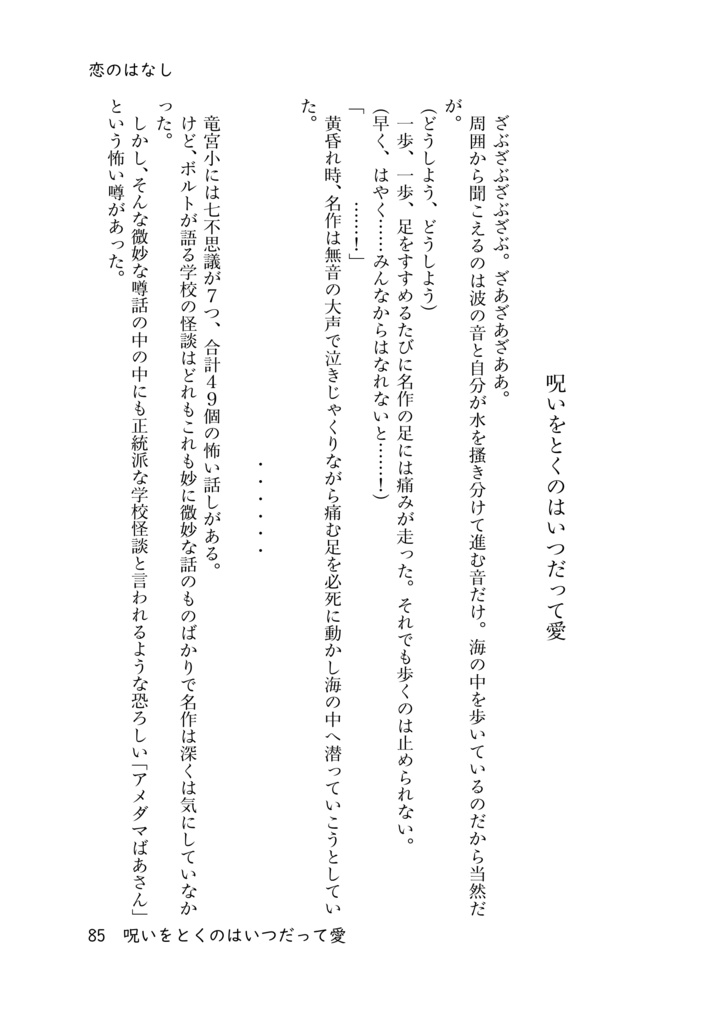 恋のはなし
呪いをとくのはいつだって愛
ざぶざぶざぶざぶ。ざあざあざああ。
周囲から聞こえるのは波の音と自分が水を搔き分けて進む音だけ。海の中を歩いているのだから当然だ
が。
(どうしよう、どうしよう)
一歩、一歩、足をすすめるたびに名作の足には痛みが走った。それでも歩くのは止められない。
(早く、はやく……みんなからはなれないと……!)
「　　　　……!」
黄昏れ時、名作は無音の大声で泣きじゃくりながら痛む足を必死に動かし海の中へ潜っていこうとしてい
た。
・・・・・・
竜宮小には七不思議が7つ、合計49個の怖い話しがある。
けど、ボルトが語る学校の怪談はどれもこれも妙に微妙な話のものばかりで名作は深くは気にしていなか
った。
しかし、そんな微妙な噂話の中の中にも正統派な学校怪談と言われるような恐ろしい「アメダマばあさん」
という怖い噂があった。
85　呪いをとくのはいつだって愛